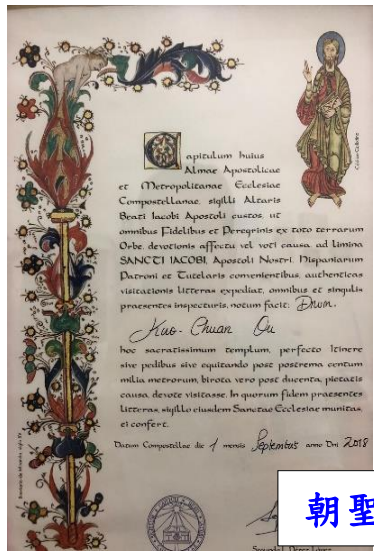 Capitulum huius
Almae Apostolicae
et Metropolitanae Ecclesiae
Compostellanae, sigilli Altaris
Beati Iacobi Apostoli custos, ut
omnibus Fidelibus et Peregrinis ex toto terrarum
Orbe, devotionis affectu vel voti causa, ad limina
SANCTI IACOBI, Apostoli Nostri, Hispaniarum
Patroni et Tutelaris convenientibus, authenticas
visitationis litteras expediat, omnibus et singulis
praesentes inspecturis, notum facit: Dnum.
Kuo-Chuan Ou
hoc sacratissimum templum, perfecto Itinere
sive pedibus sive equitando post postrema centum
milia metrorum, birota vero post ducenta, pietatis
causa, devote visitasse. In quorum fidem praesentes
litteras, sigillo eiusdem Sanctae Ecclesiae munitas,
ei confert.
Datum Compostellae die 1 mensis Septembris anno Dni 2018
Segundo L. Pérez López
朝聖